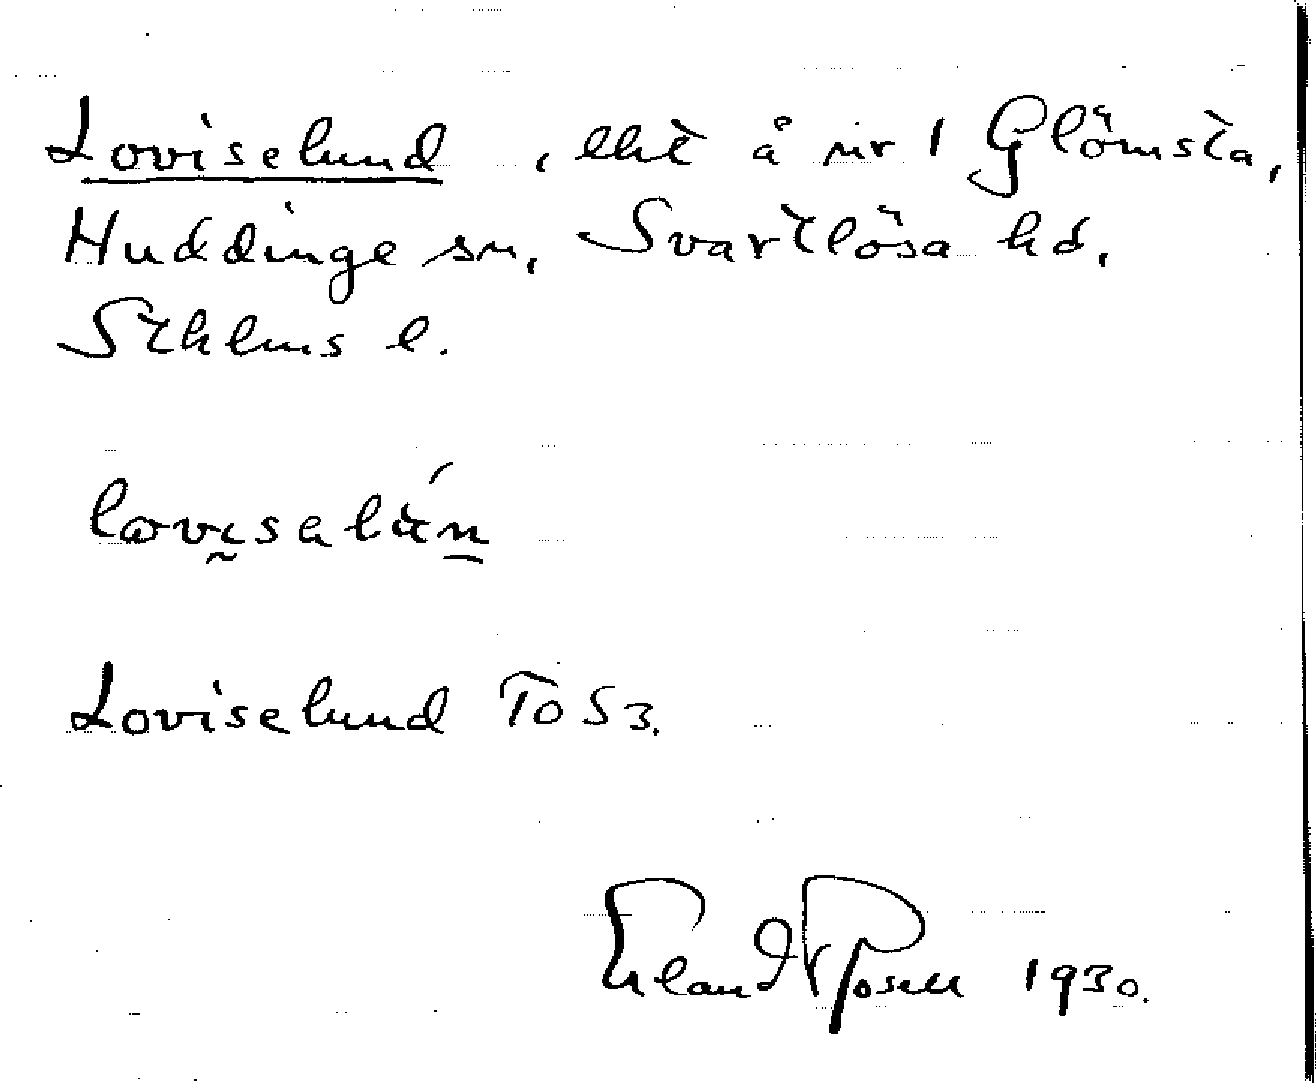 Loviselund, lht å nr 1 Glömsta,
Huddinge sn, Svartlösa hd,
Sthlms l.
Loviselund To S3.
Erland Rosell 1930.